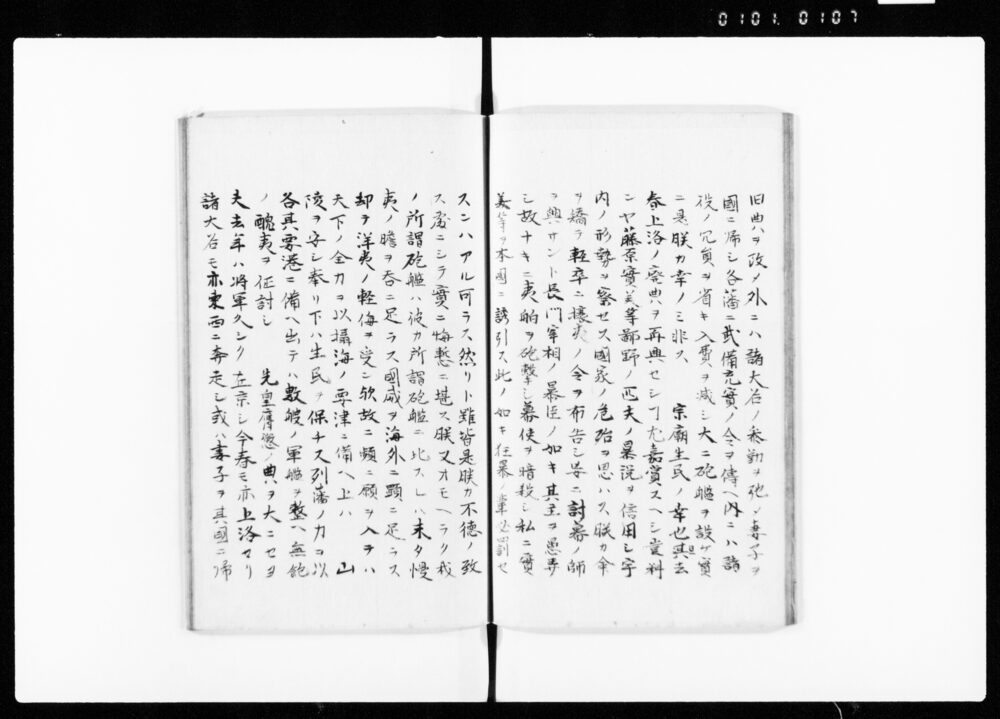 0101. 0107
旧典ヲ改メ外ニハ諸大名ノ参勤ヲ弛メ妻子ヲ
國ニ帰シ各藩ニ武備充實ノ令ヲ傳ヘ内ニハ諸
役ノ冗員ヲ省キ入費ヲ減シ大ニ砲艦ヲ設ケ實
ニ是朕カ幸ノミ非ス 宗廟生民ノ幸也且去
春上洛ノ廃典ヲ再興セシ丁尤嘉賞スヘシ豈料
ンヤ藤原實美等鄙野ノ匹夫ノ暴説ヲ信用シ宇
内ノ形勢ヲ察セス國家ノ危殆ヲ思ハス朕カ命
ヲ矯テ軽卒ニ攘夷ノ令ヲ布告シ妄ニ討幕ノ師
ヲ興サント長門宰相ノ暴臣ノ如キ其主ヲ愚弄
シ故ナキニ夷舶ヲ砲撃シ幕使ヲ暗殺シ私ニ實
美等ヲ本國ニ誘引ス此ノ如キ狂暴ノ輩必罰セ
スンハアル可ラス然リト雖皆是朕カ不徳ノ致
ス處ニシテ實ニ悔慙ニ堪ス朕又オモヘラク我
ノ所謂砲艦ハ彼カ所謂砲艦ニ比スレハ未タ慢
夷ノ膽ヲ呑ニ足ラス國威ヲ海外ニ顕ニ足ラス
却テ洋夷ノ軽侮ヲ受ン欤故ニ頻ニ願ヲ入ヲハ
天下ノ全力ヲ以攝海ノ要津ニ備ヘ上ハ 山
陵ヲ安シ奉リ下ハ生民ヲ保チ又列藩ノ力ヲ以
各其要港ニ備ヘ出テハ数艘ノ軍艦ヲ整ヘ無飽
ノ醜夷ヲ征討シ 先皇膺懲ノ典ヲ大ニセヨ
夫去年ハ将軍久シク在京シ今春モ亦上洛セリ
諸大名モ亦東西ニ奔走シ或ハ妻子ヲ其國ニ帰